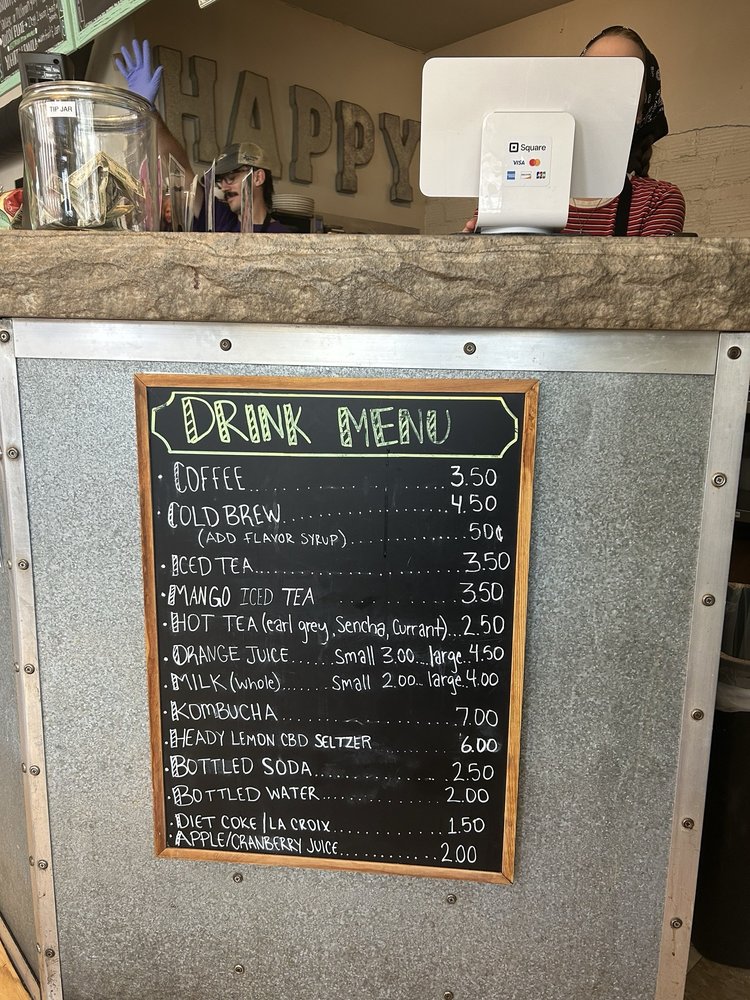 TIP JAR
HAPPY
Square
VISA
DRINK MENU
· COFFEE.......................3.50
· COLD BREW.......................4.50
(ADD FLAVOR SYRUP).................50¢
· ICED TEA.......................3.50
· MANGO ICED TEA.................3.50
· HOT TEA (earl grey, Sencha, Currant)...2.50
· ORANGE JUICE......Small 3.00...large..4.50
· MILK (whole).......Small 2.00...large.4.00
· KOMBUCHA.......................7.00
· HEADY LEMON CBD SELTZER.............6.00
· BOTTLED SODA.......................2.50
· BOTTLED WATER.......................2.00
· DIET COKE/LA CROIX.................1.50
· APPLE/CRANBERRY JUICE...............2.00